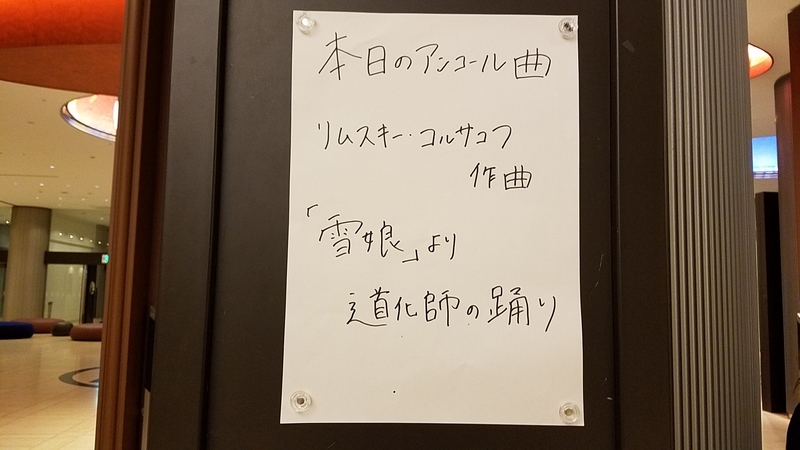 本日のアンコール曲
リムスキー・コルサコフ
作曲
「雪娘」より
道化師の踊り